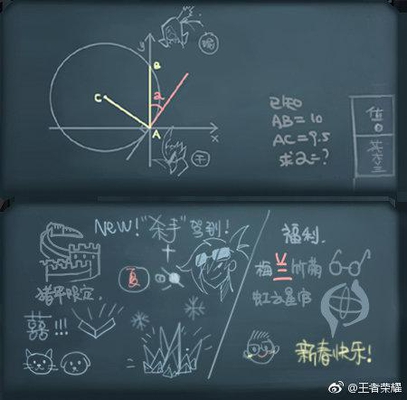 y
嘟
B
C
2
A
x
干
已知
AB=10
AC=9.5
求2=?
New!"杀手"驾到!
夏
猪年限定
囍!!!
福利.
梅兰竹菊
虹云星官
新春快乐!
@王者荣耀